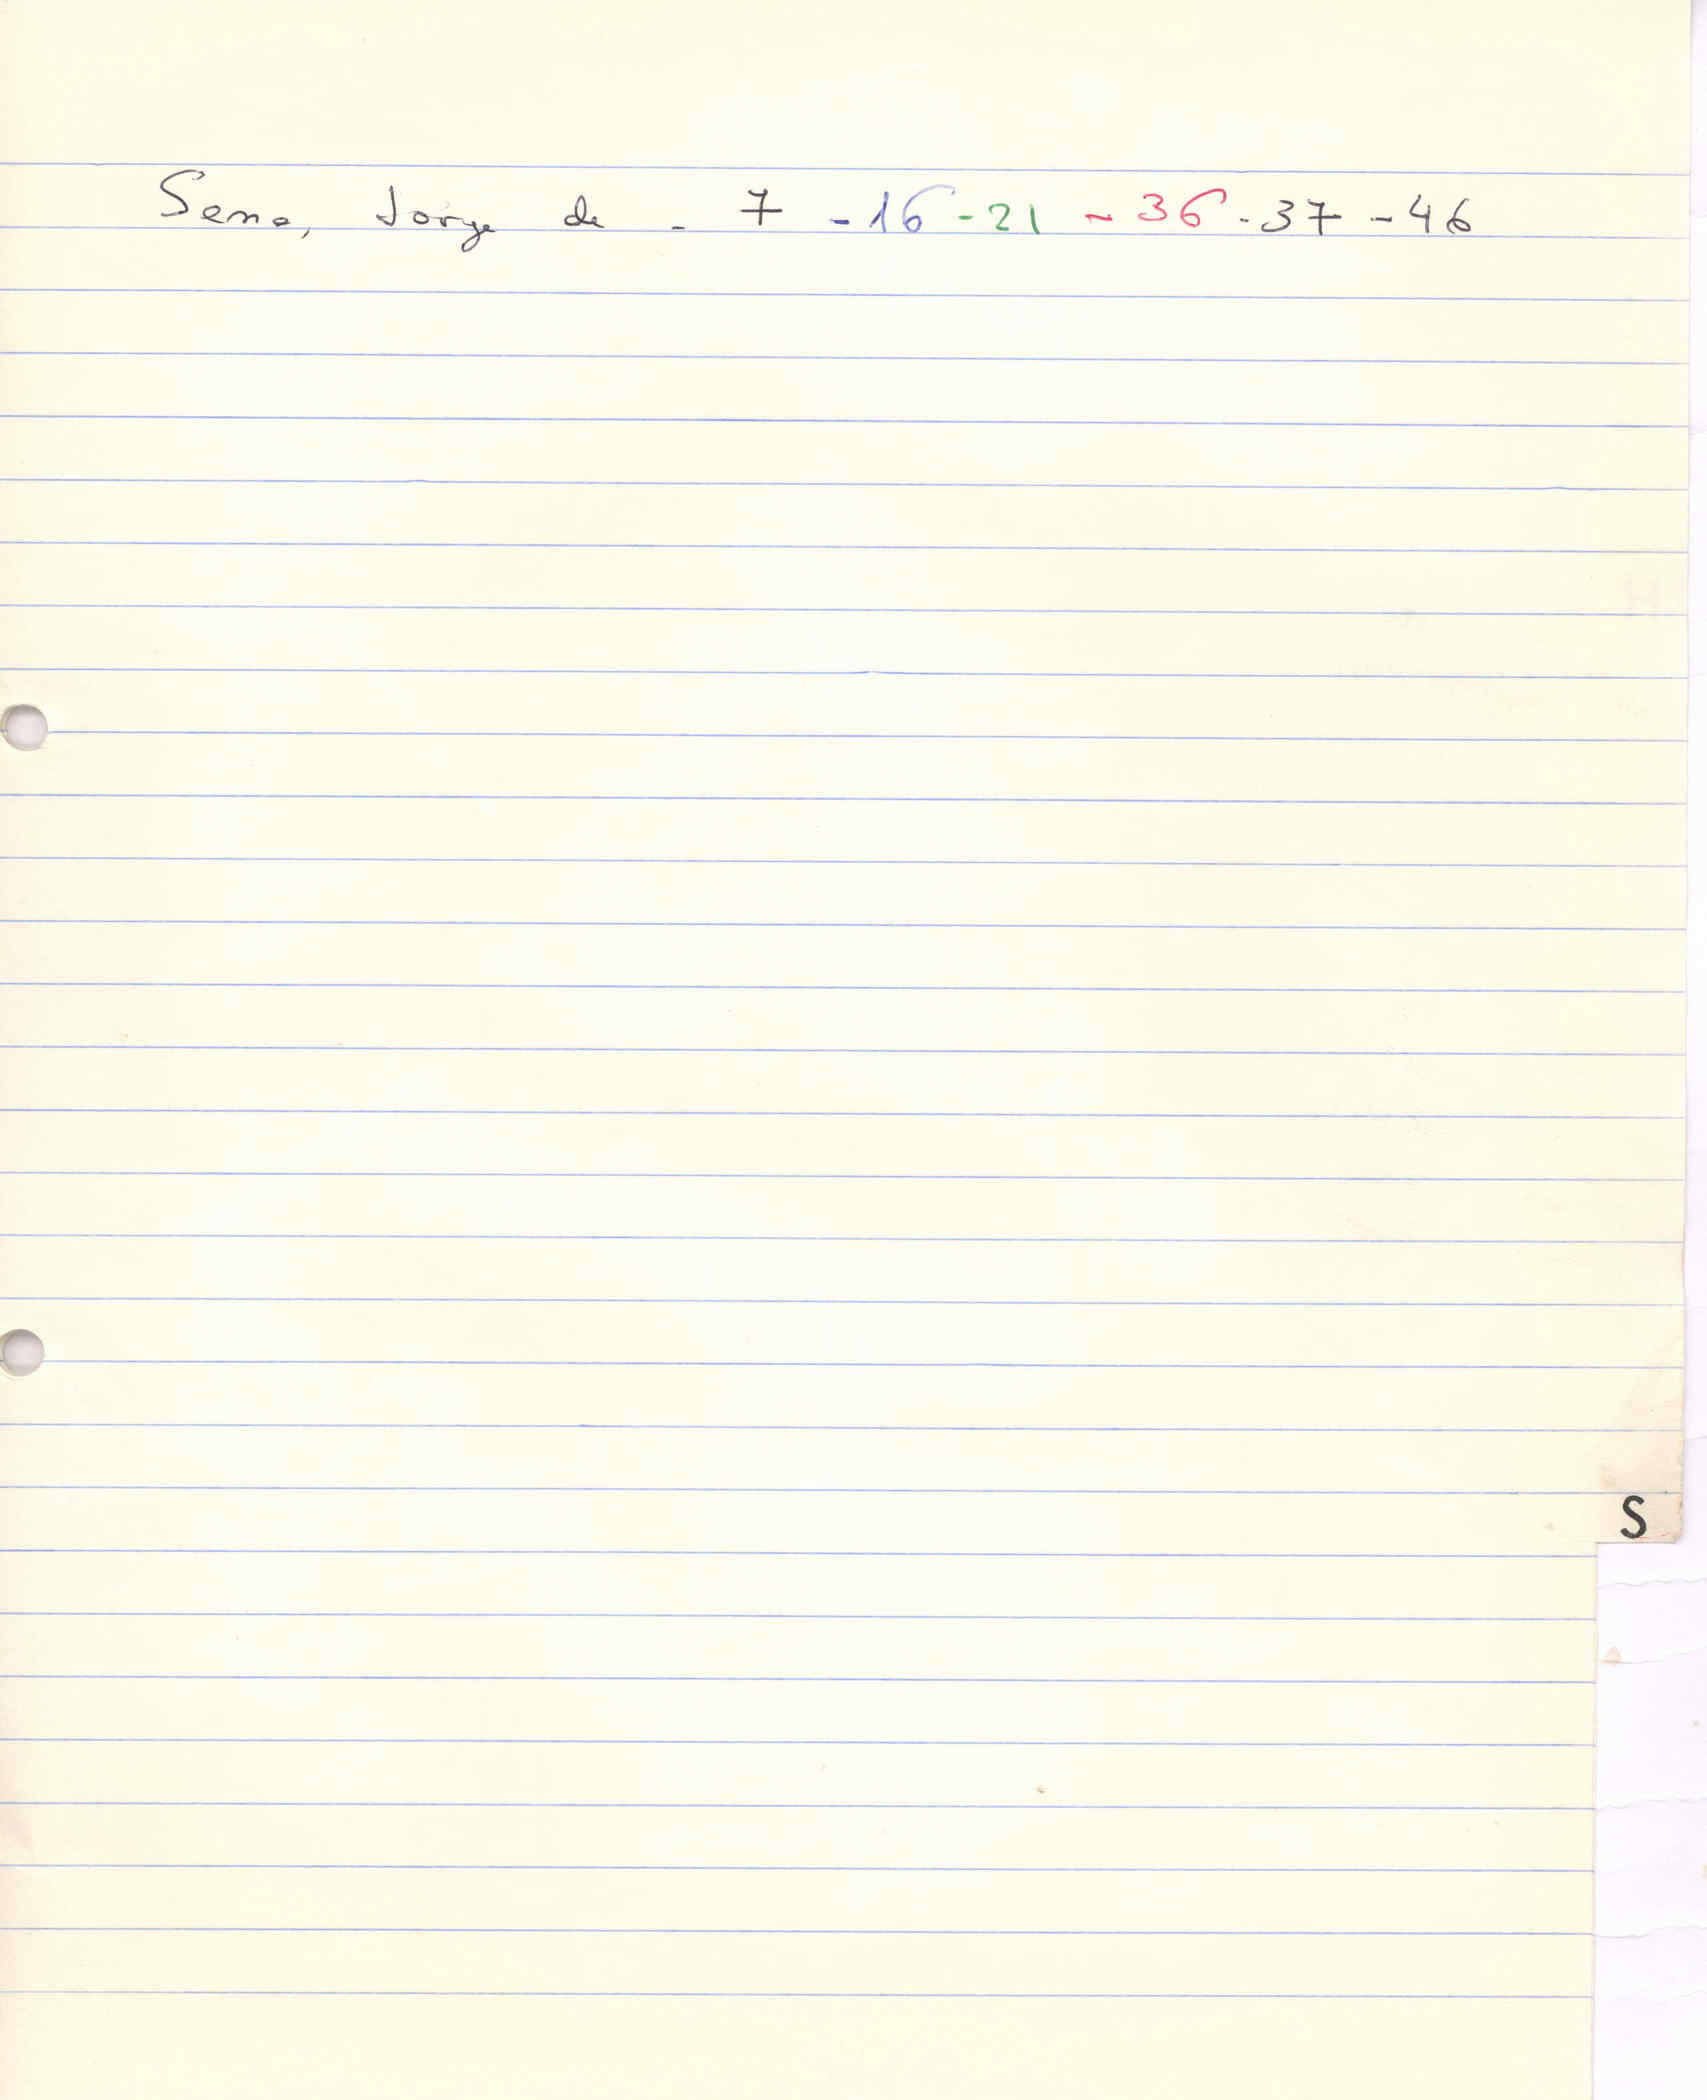 Sena, Jorge de - 7 - 16 - 21 - 36 - 37 - 46
S